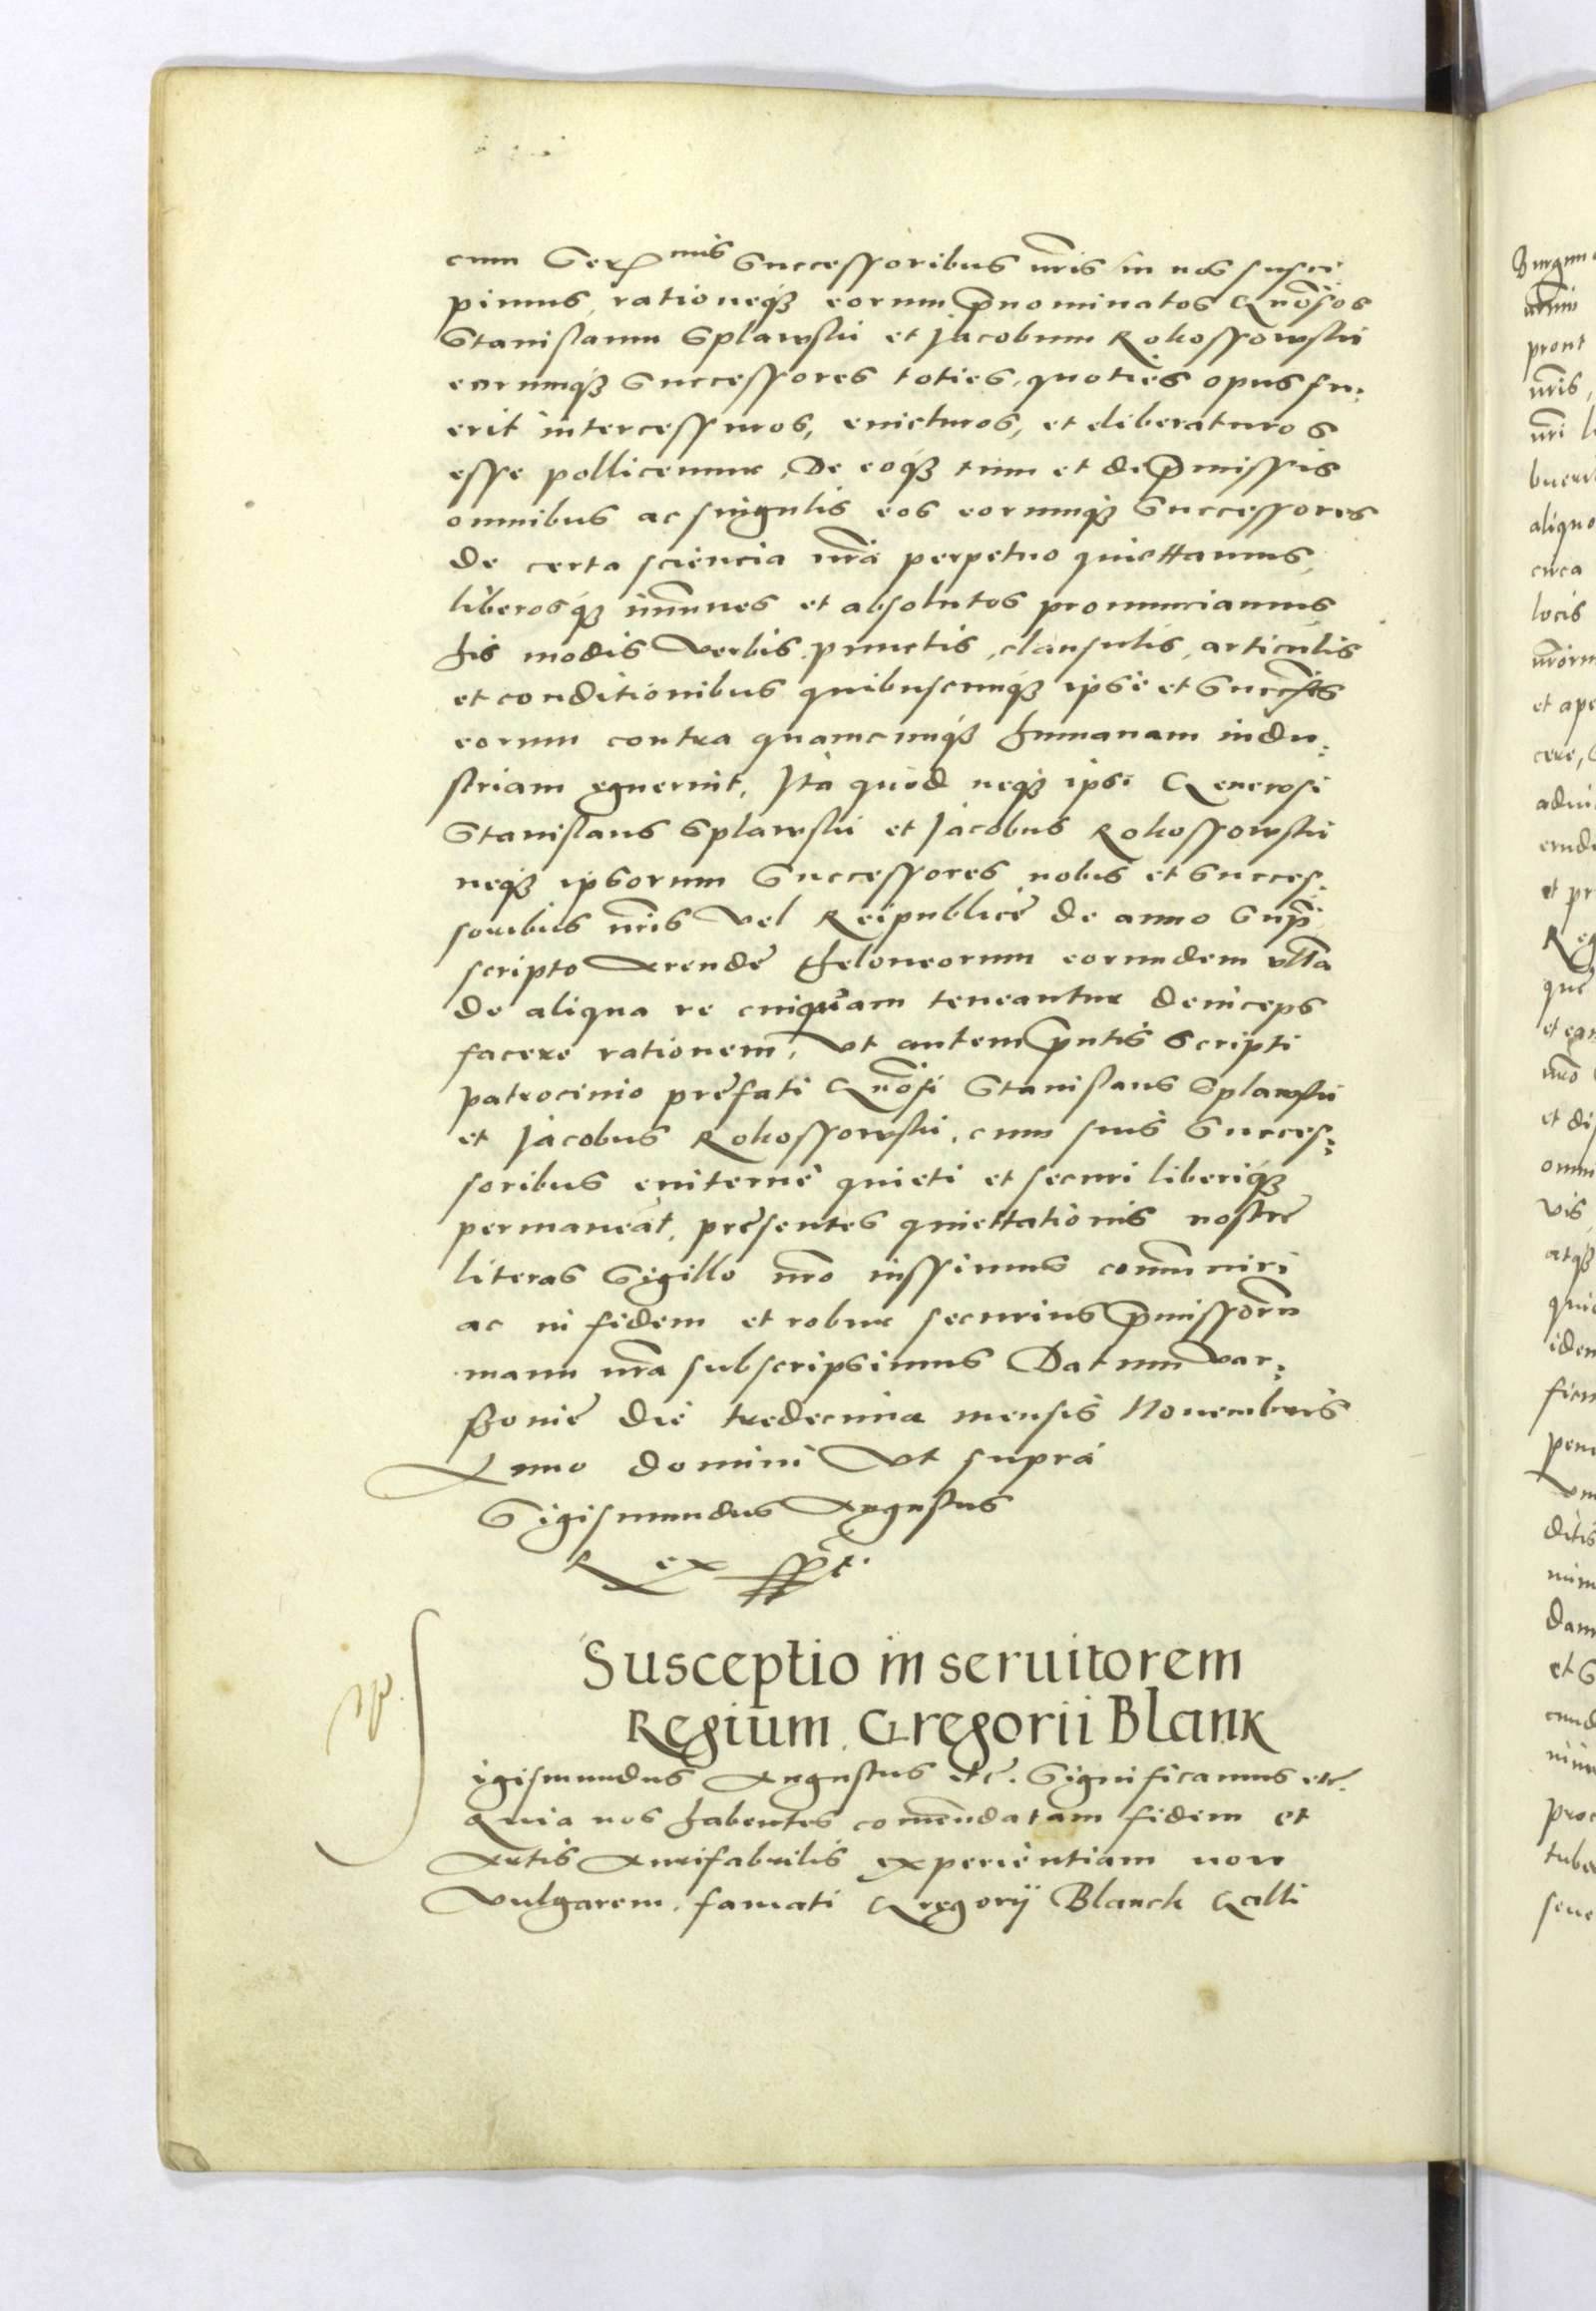 cum Ser<sup>mis</sup> Successoribus nris in nos susci
pimus, rationeq́ꝫ eorum p̄nominatos Gnōsos
Stanislaum Splawski et Jacobum Rokossowski
eorumq́ꝫ Successores toties, quoties opus fu:
erit intercessuros, euicturos, et liberaturos
esse pollicemur, De eoq́ꝫ tum et de p̄missis
omnibus ac singulis eos eorumq́ꝫ Successores
de certa sciencia nr̄a perpetuo quiettamus,
liberosq́ꝫ im̄unes et absolutos pronunciamus
his modis verbis, punctis, clausulis, articulis
et conditionibus quibuscunq́ꝫ ipsi et
eorum contra quamcunq́ꝫ humanam indu:
striam eguerint, Ita quod neq́ꝫ ipsi Generosi
Stanislaus Splawski et Jacobus Rokossowski
neq́ꝫ ipsorum Successores nobis et Succes:
soribus nr̄is vel Reipublicę de anno Sup̄
scripto Arendę theloneorum eorundem ulla
de aliqua re cuiquam teneantur deinceps
facere rationem, Vt autem p̄ntis scripti
patrocinio prefati Gnōsi Stanislaus Splawski
et Jacobus Rokossowski, cum suis Succes:
soribus euiternè quieti et securi liberiq́ꝫ
permaneāt, presentes quiettationis nostrę
literas Sigillo nr̄o iussimus com̄uniri
ac in fidem et robur securius p̄missorū
manu nr̄a subscripsimus Datum Var:
sżouię die tredecima mensis Nouembris
Anno domini Vt supra
Sigismundus Augustus
Rex sspt.
Susceptio in seruitorem
Regium Gregorii Blank
Sigismundus Augustus etc. Significamus etc.
Quia nos habentes com̄endatam fidem et
Artis Aurifabrilis experientiam non
Vulgarem, famati Gregorij Blanck Galli
Burgun
pront
nr̄is,
nr̄i
aliquo
circa
locis
et ape
cere,
et pr
Reg
quę
nr̄o
et di
omni
vis
atq́ꝫ
iden
ditis
dam
et S
proc